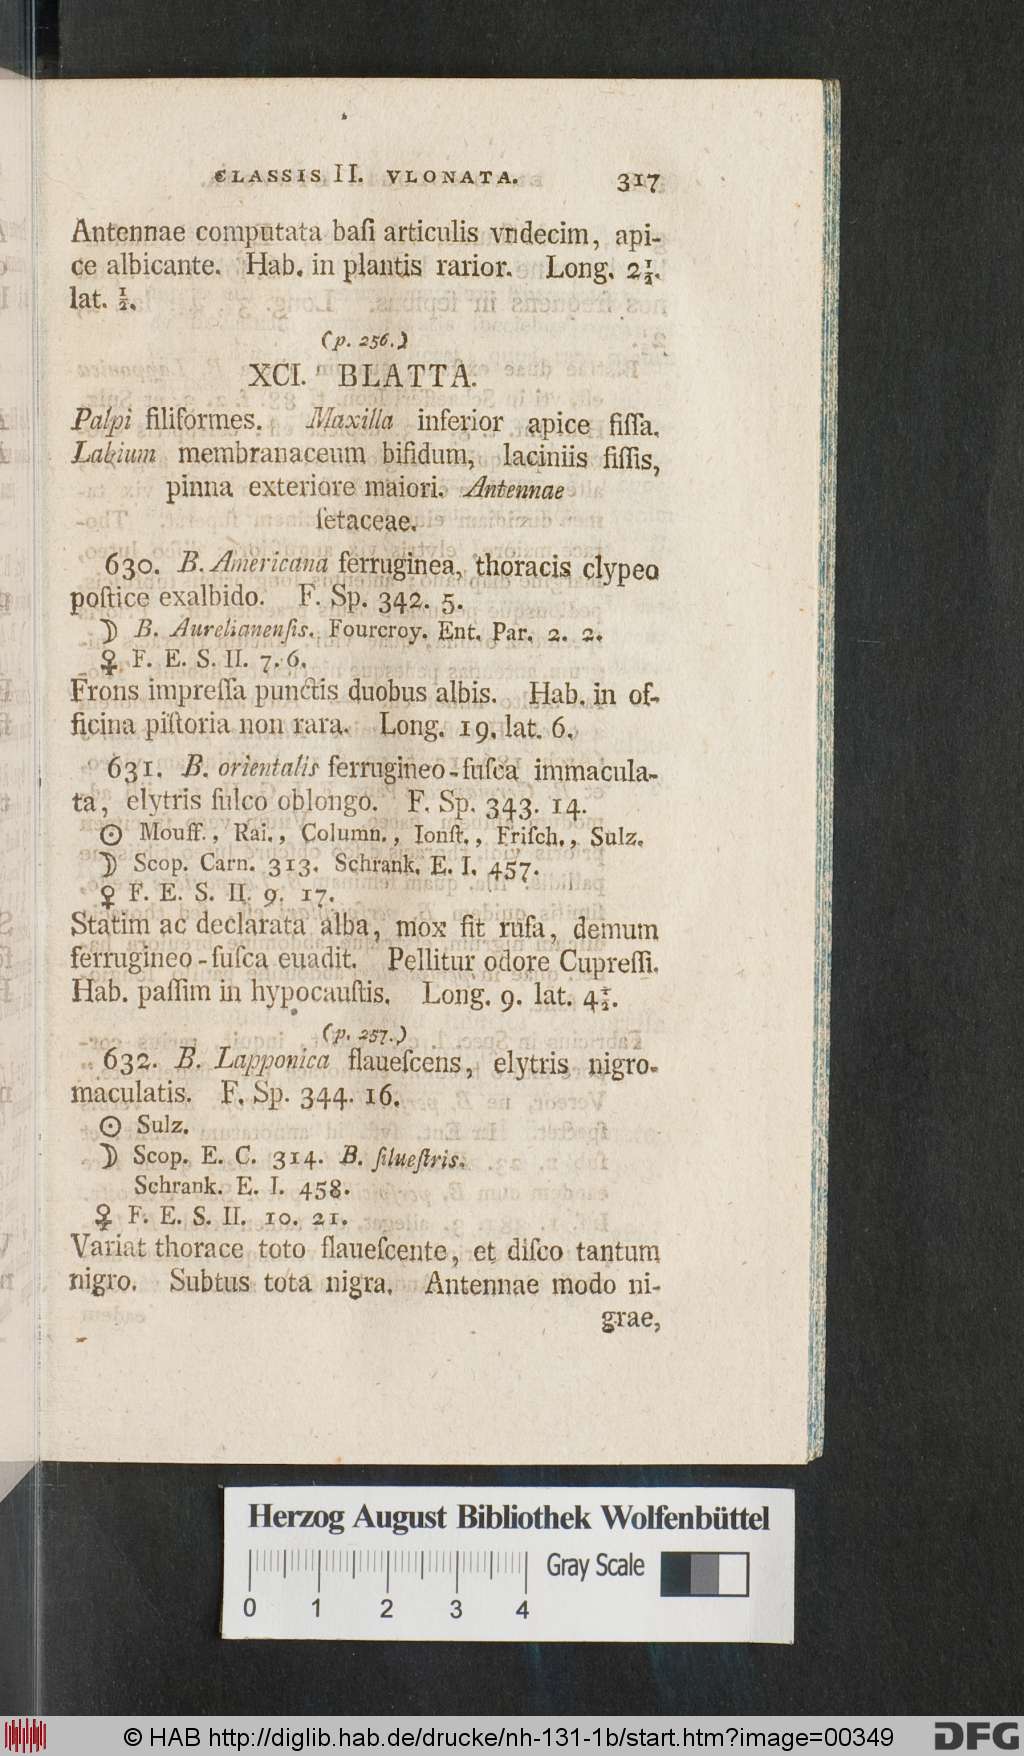 CLASSIS II. VLONATA. 317
Antennae computata baſi articulis vndecim, api-
ce albicante. Hab. in plantis rarior. Long. 2½.
lat. ½.
(p. 256.)
XCI. BLATTA.
Palpi filiformes. Maxilla inferior apice fiſſa.
Labium membranaceum bifidum, laciniis fiſſis,
pinna exteriore maiori. Antennae
ſetaceae.
630. B. Americana ferruginea, thoracis clypeo
poſtice exalbido. F. Sp. 342. 5.
☽ B. Aurelianenſis. Fourcroy. Ent. Par. 2. 2.
♀ F. E. S. II. 7. 6.
Frons impreſſa punctis duobus albis. Hab. in of-
ficina piſtoria non rara. Long. 19. lat. 6.
631. B. orientalis ferrugineo-fuſca immacula-
ta, elytris ſulco oblongo. F. Sp. 343. 14.
☉ Mouff., Rai., Column., Ionſt., Friſch., Sulz.
☽ Scop. Carn. 313. Schrank. E. I. 457.
♀ F. E. S. II. 9. 17.
Statim ac declarata alba, mox fit rufa, demum
ferrugineo-fuſca euadit. Pellitur odore Cupreſſi.
Hab. paſſim in hypocauſtis. Long. 9. lat. 4½.
(p. 257.)
632. B. Lapponica flaueſcens, elytris nigro-
maculatis. F. Sp. 344. 16.
☉ Sulz.
☽ Scop. E. C. 314. B. ſilueſtris.
Schrank. E. I. 458.
♀ F. E. S. II. 10. 21.
Variat thorace toto flaueſcente, et diſco tantum
nigro. Subtus tota nigra. Antennae modo ni-
grae,
Herzog August Bibliothek Wolfenbüttel
Gray Scale
0 1 2 3 4
© HAB http://diglib.hab.de/drucke/nh-131-1b/start.htm?image=00349
DFG